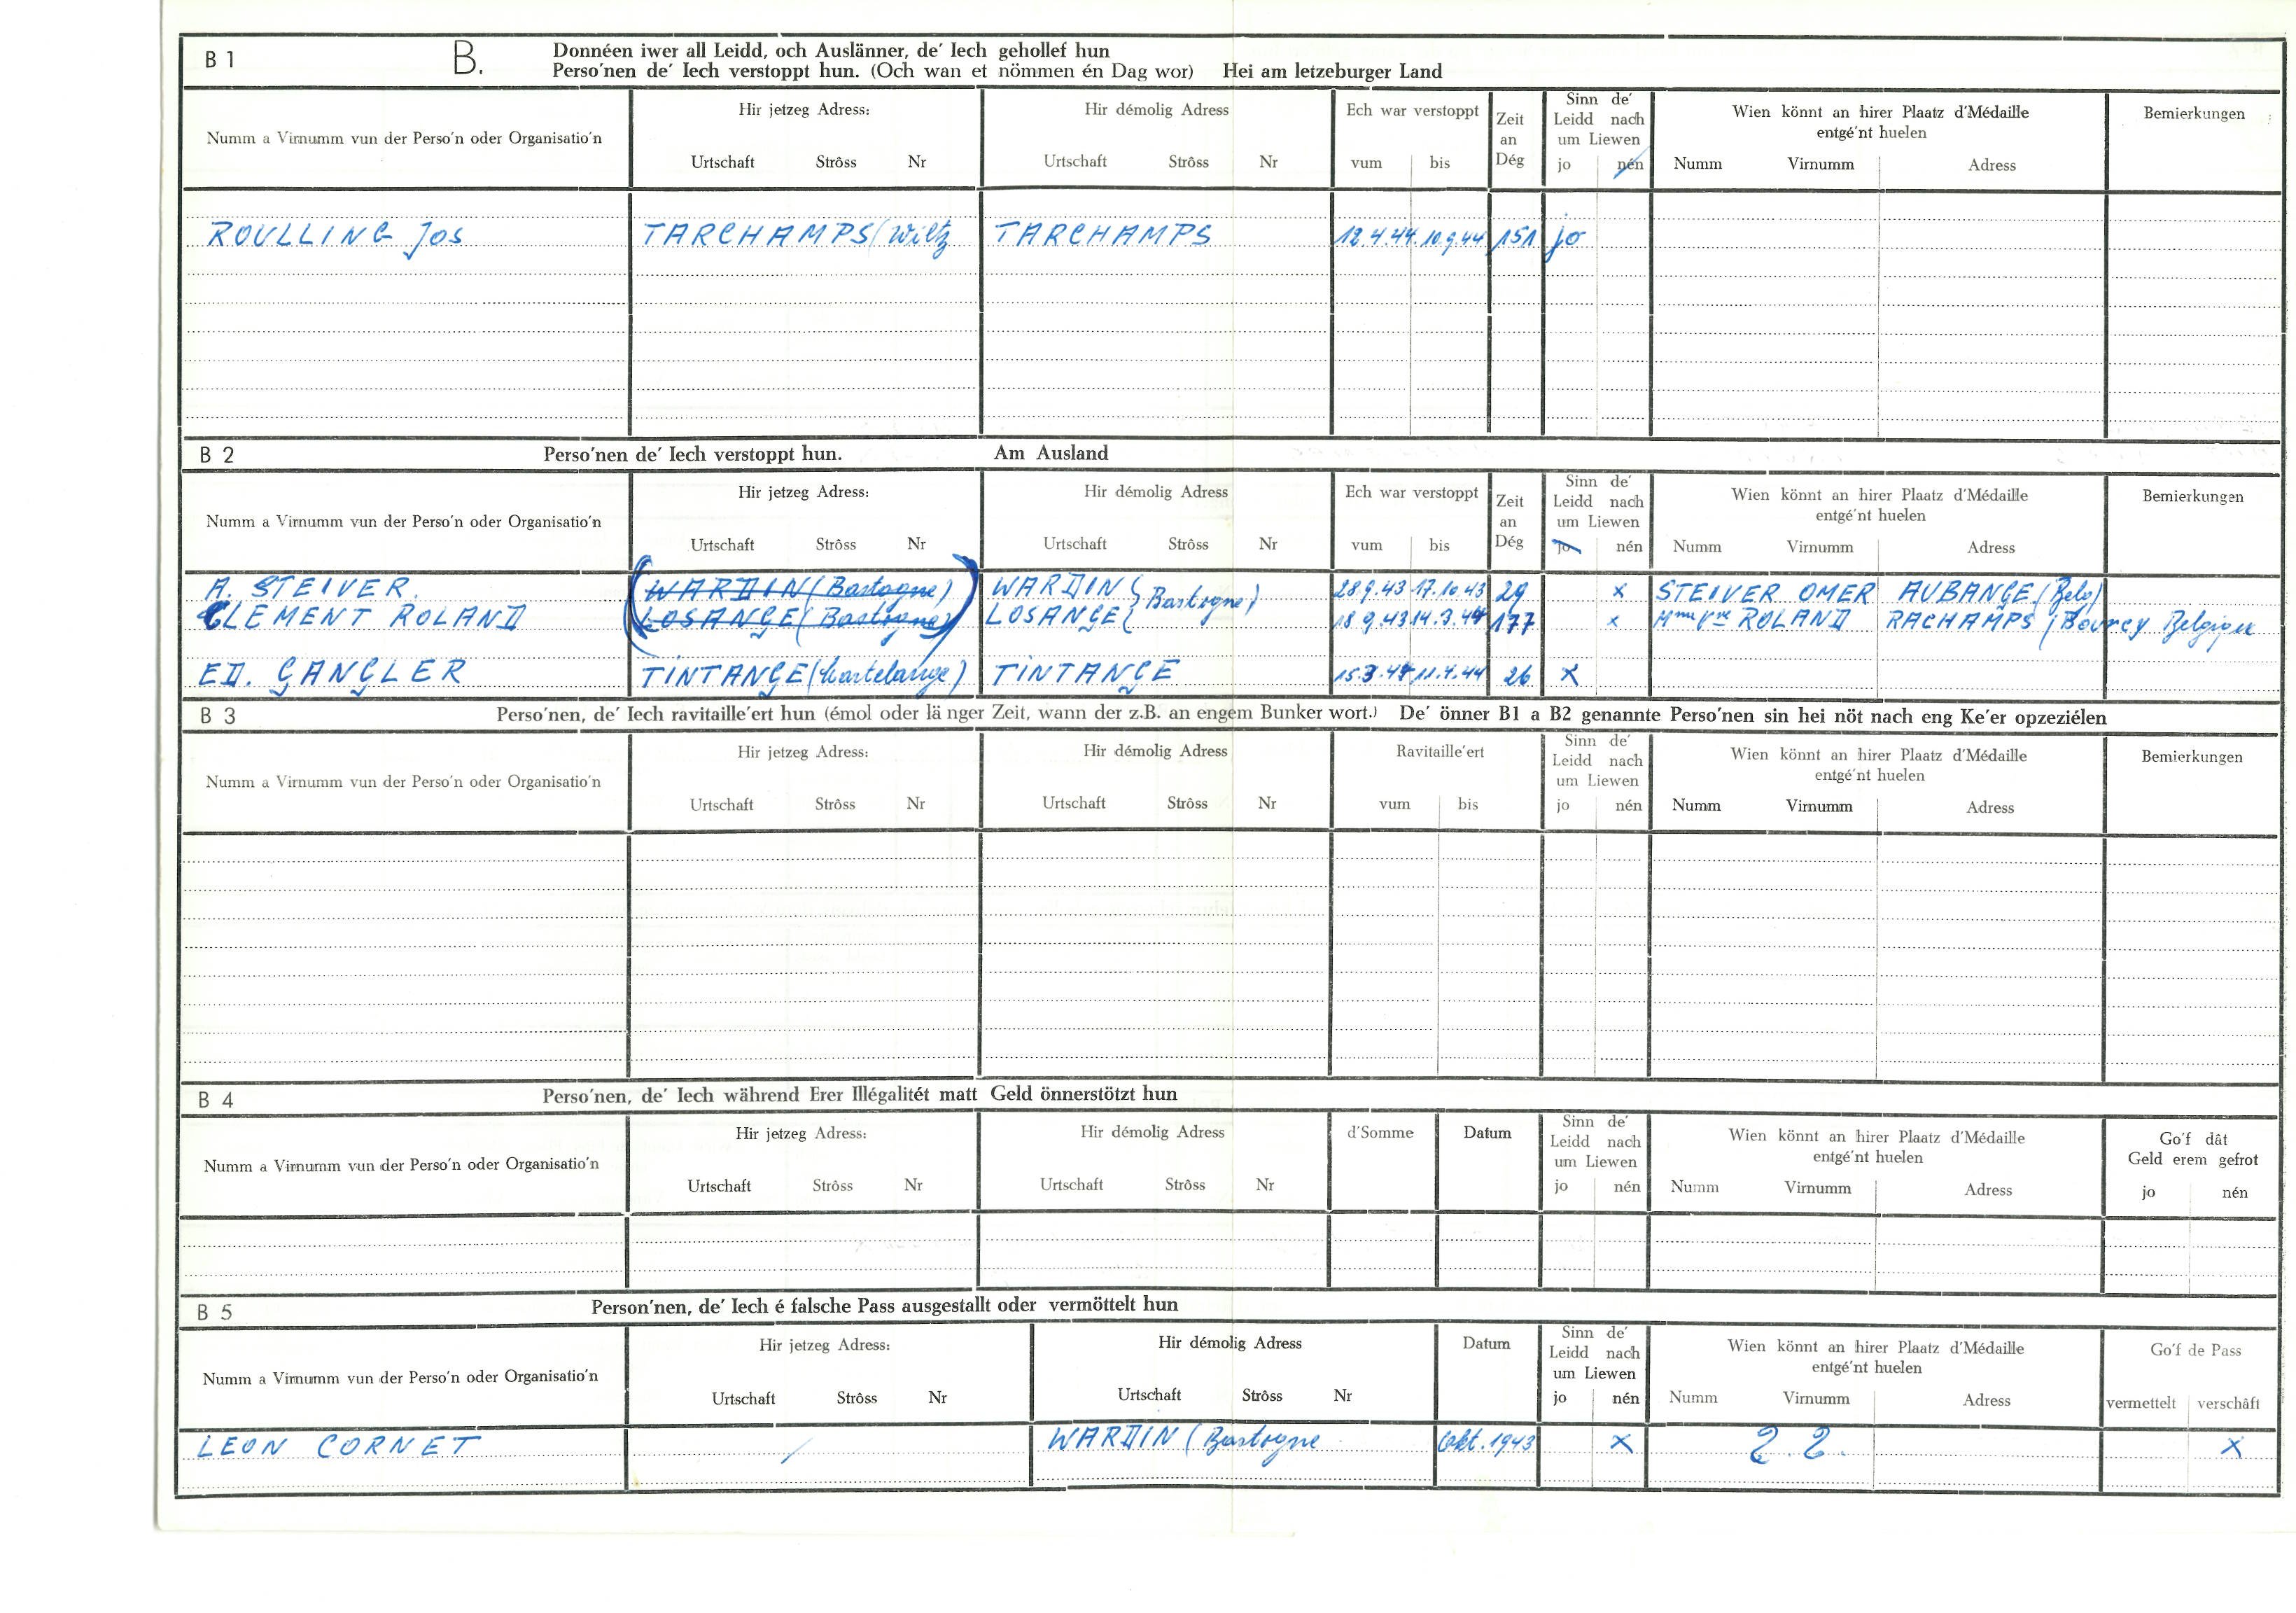 B 1 B. Donnéen iwer all Leidd, och Auslänner, de' Iech gehollef hun
Perso'nen de' Iech verstoppt hun. (Och wan et nömmen én Dag wor) Hei am letzeburger Land
Numm a Virnumm vun der Perso'n oder Organisatio'n
Hir jetzeg Adress:
Urtschaft Strôss Nr
Hir démolig Adress
Urtschaft Strôss Nr
Ech war verstoppt
vum bis
Zeit
an
Dég
Sinn de'
Leidd nach
um Liewen
jo nén
Wien könnt an hirer Plaatz d'Médaille
entgé'nt huelen
Numm Virnumm Adress
Bemierkungen
ROULLING Jos TARCHAMPS (Wiltz TARCHAMPS 12.4.44. 10.9.44 151 jo
B 2 Perso'nen de' Iech verstoppt hun. Am Ausland
Numm a Virnumm vun der Perso'n oder Organisatio'n
Hir jetzeg Adress:
Urtschaft Strôss Nr
Hir démolig Adress
Urtschaft Strôss Nr
Ech war verstoppt
vum bis
Zeit
an
Dég
Sinn de'
Leidd nach
um Liewen
jo nén
Wien könnt an hirer Plaatz d'Médaille
entgé'nt huelen
Numm Virnumm Adress
Bemierkungen
A. STEIVER. (WARDIN (Bastogne) WARDIN { Bastogne) 28.9.43 17.10.43 29 x STEIVER OMER AUBANGE (Belg)
CLEMENT ROLAND LOSANGE (Bastogne) LOSANGE { 18 9.43 14.3.44 177 x Mme Vve ROLAND RACHAMPS (Bourcy Belgique
ED. GANGLER TINTANGE (Martelange) TINTANGE 15.3.44 11.4.44 26 x
B 3 Perso'nen, de' Iech ravitaille'ert hun (émol oder lä nger Zeit, wann der z.B. an engem Bunker wort.) De' önner B1 a B2 genannte Perso'nen sin hei nöt nach eng Ke'er opzeziélen
Numm a Virnumm vun der Perso'n oder Organisatio'n
Hir jetzeg Adress:
Urtschaft Strôss Nr
Hir démolig Adress
Urtschaft Strôss Nr
Ravitaille'ert
vum bis
Sinn de'
Leidd nach
um Liewen
jo nén
Wien könnt an hirer Plaatz d'Médaille
entgé'nt huelen
Numm Virnumm Adress
Bemierkungen
B 4 Perso'nen, de' Iech während Erer Illégalitét matt Geld önnerstötzt hun
Numm a Virnumm vun der Perso'n oder Organisatio'n
Hir jetzeg Adress:
Urtschaft Strôss Nr
Hir démolig Adress
Urtschaft Strôss Nr
d'Somme
Datum
Sinn de'
Leidd nach
um Liewen
jo nén
Wien könnt an hirer Plaatz d'Médaille
entgé'nt huelen
Numm Virnumm Adress
Go'f dât
Geld erem gefrot
jo nén
B 5 Person'nen, de' Iech é falsche Pass ausgestallt oder vermöttelt hun
Numm a Virnumm vun der Perso'n oder Organisatio'n
Hir jetzeg Adress:
Urtschaft Strôss Nr
Hir démolig Adress
Urtschaft Strôss Nr
Datum
Sinn de'
Leidd nach
um Liewen
jo nén
Wien könnt an hirer Plaatz d'Médaille
entgé'nt huelen
Numm Virnumm Adress
Go'f de Pass
vermettelt verschâft
LEON CORNET / WARDIN (Bastogne Okt. 1943 x ?. ?. x